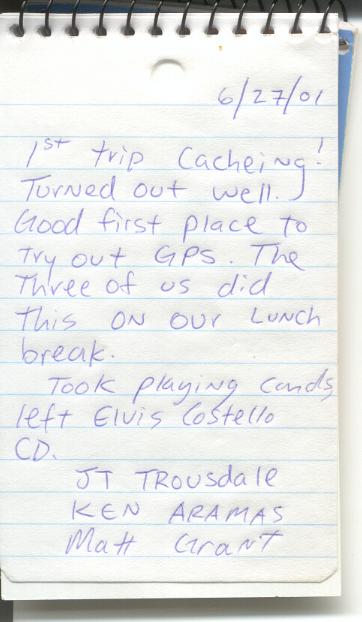 6/27/01
1st trip Cacheing!
Turned out well.
Good first place to
try out GPS. The
Three of us did
this on our Lunch
break.
Took playing cards,
left Elvis Costello
CD.
JT Trousdale
Ken Aramas
Matt Grant